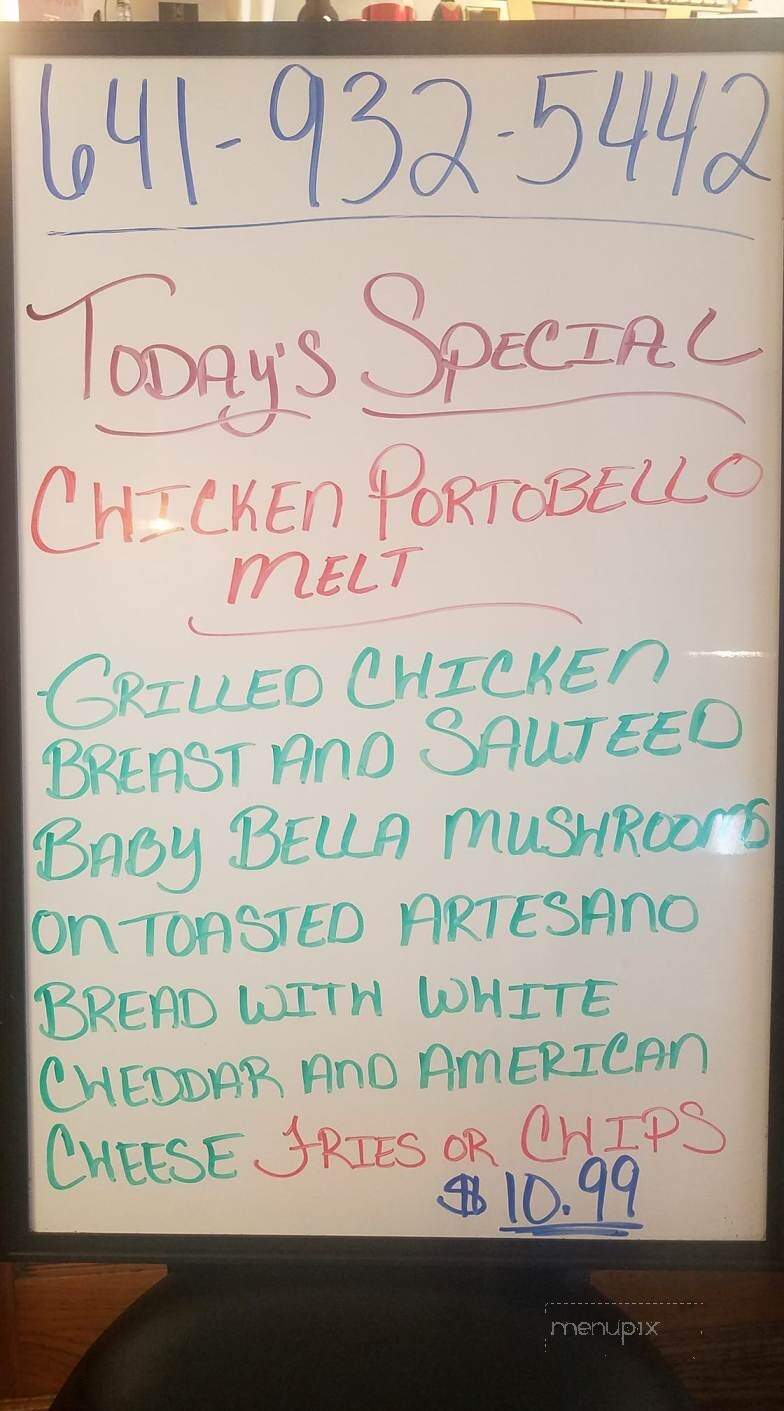 641-932-5442
TODAY'S SPECIAL
CHICKEN PORTOBELLO
MELT
GRILLED CHICKEN
BREAST AND SAUTEED
BABY BELLA MUSHROOMS
ON TOASTED ARTESANO
BREAD WITH WHITE
CHEDDAR AND AMERICAN
CHEESE FRIES OR CHIPS
$10.99
menupix